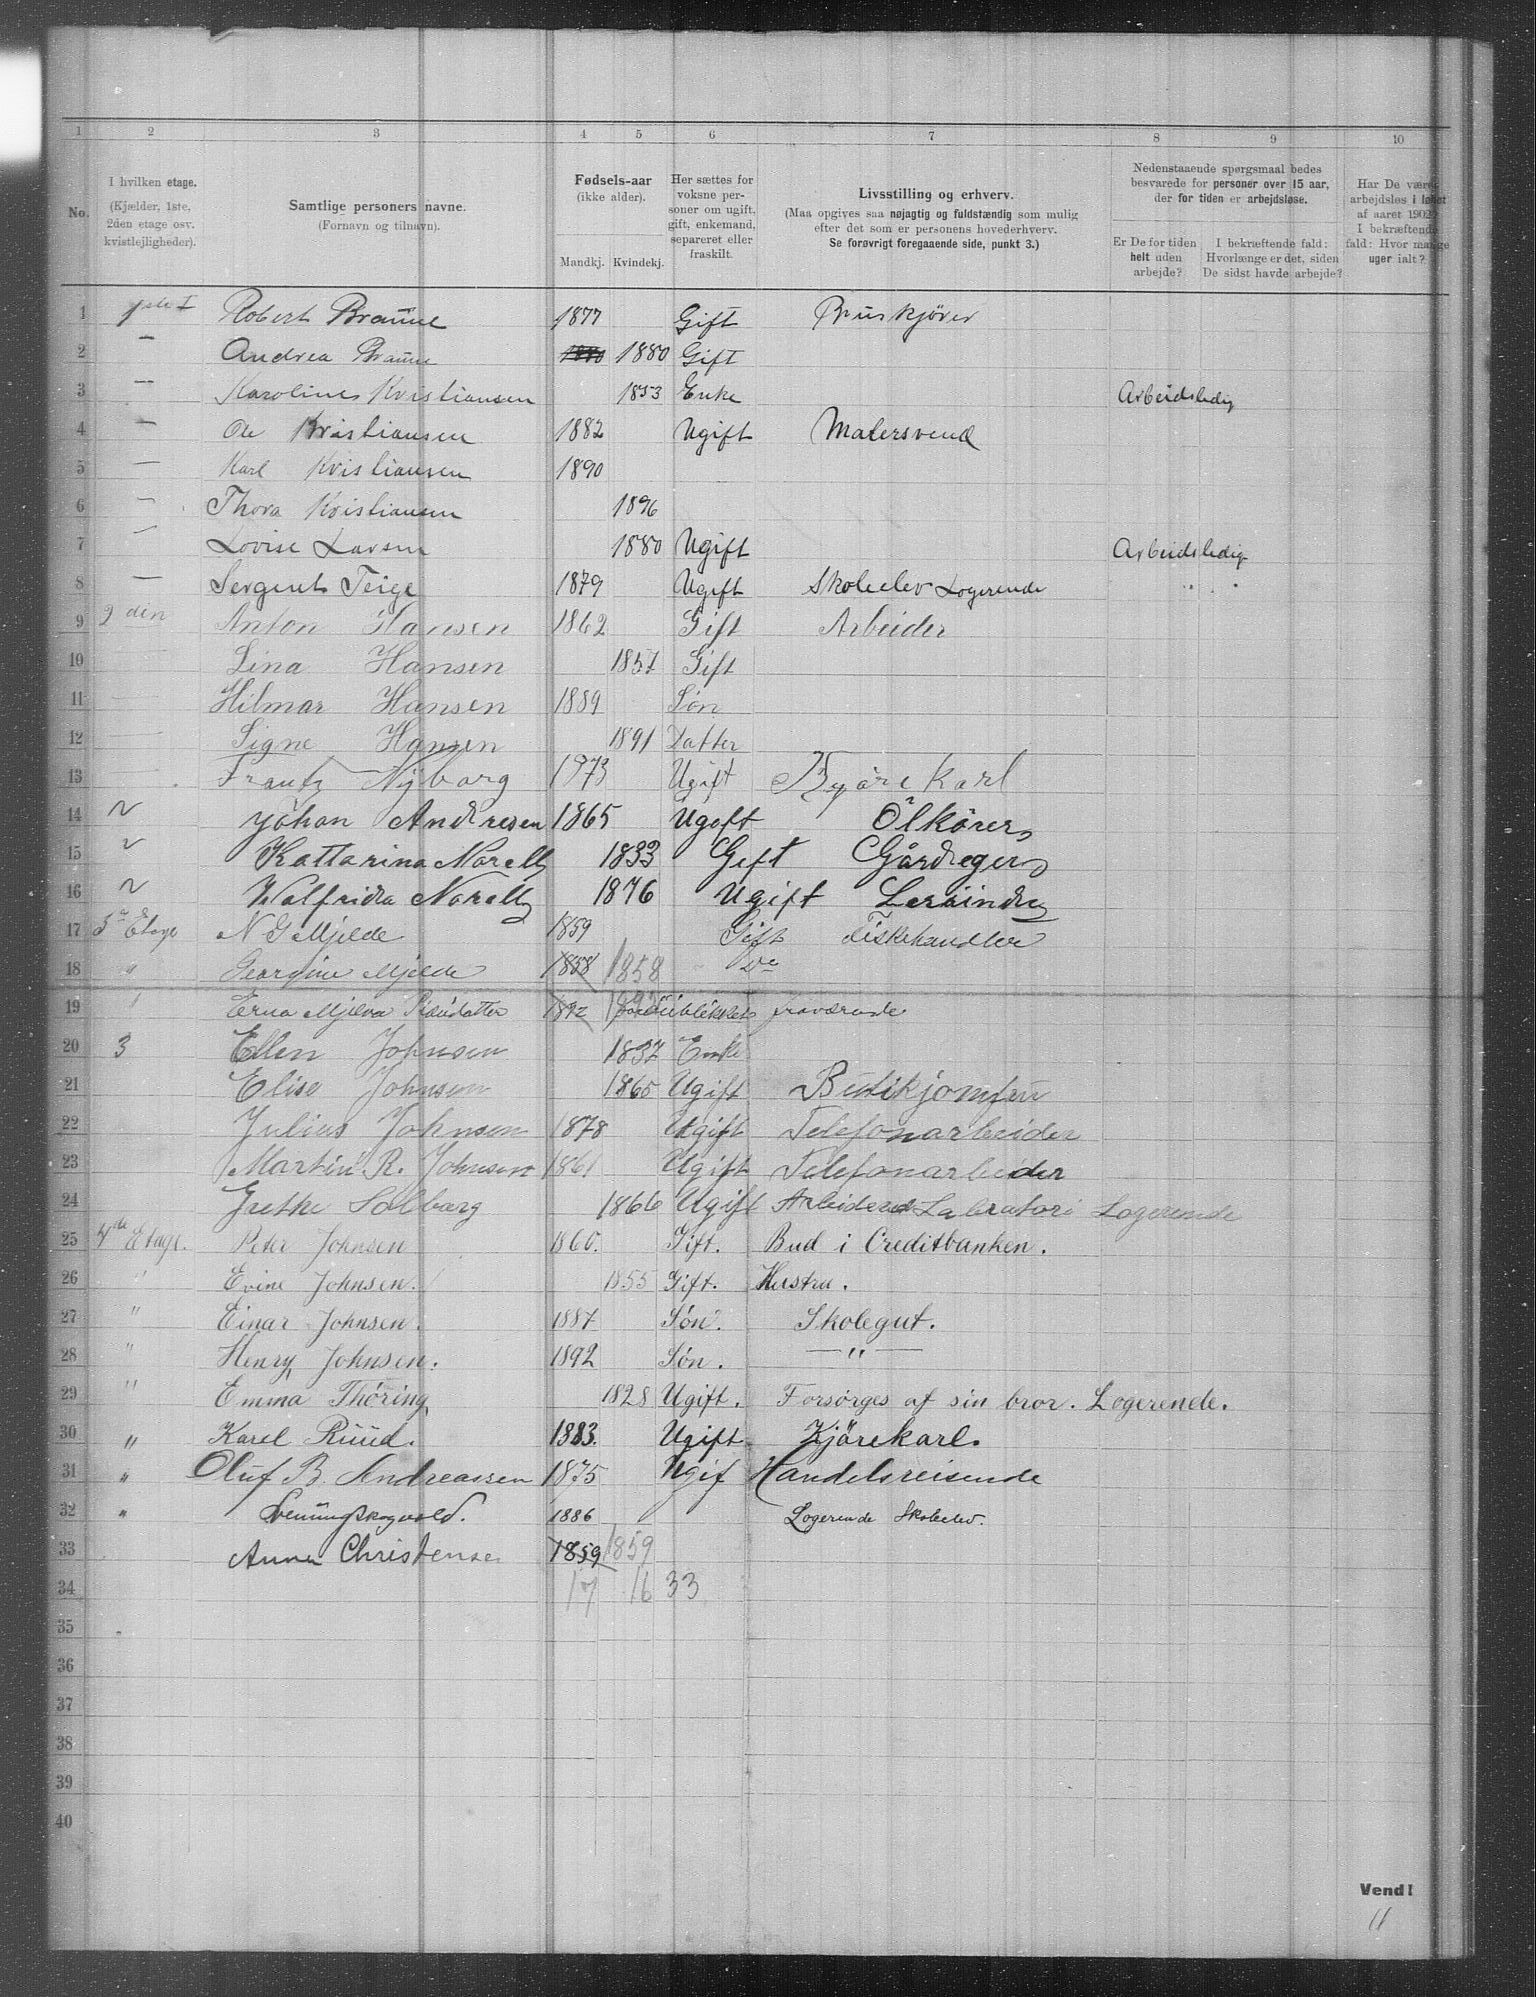 1 2 3 4 5 6 7 8 9 10
No.
I hvilken etage.
(Kjælder, 1ste,
2den etage osv.
kvistlejligheder).
Samtlige personers navne.
(Fornavn og tilnavn).
Fødsels-aar
(ikke alder).
Mandkj. Kvindekj.
Her sættes for
voksne per-
soner om ugift,
gift, enkemand,
separeret eller
fraskilt.
Livsstilling og erhverv.
(Maa opgives saa nøjagtig og fuldstændig som mulig
efter det som er personens hovederhverv.
Se forøvrigt foregaaende side, punkt 3.)
Nedenstaaende spørgsmaal bedes
besvarede for personer over 15 aar,
der for tiden er arbejdsløse.
Er De for tiden
helt uden
arbejde?
I bekræftende fald:
Hvorlænge er det, siden
De sidst havde arbejde?
Har De være
arbejdsløs i løbet
af aaret 1902?
I bekræftende
fald: Hvor mange
uger ialt?
1 1ste I Robert Braune 1877 Gift Bruskjører
2 — Andrea Braune 1880 1880 Gift
3 — Karoline Kristiansen 1853 Enke Arbeidsledig
4 — Ole Kristiansen 1882 Ugift Malersvend
5 — Karl Kristiansen 1890
6 — Thora Kristiansen 1896
7 — Lovise Larsen 1880 Ugift Arbeidsledig
8 — Sergent Teige 1879 Ugift Skoleelev Logerende " "
9 2den Anton Hansen 1862 Gift Arbeider
10 — Lina Hansen 1857 Gift
11 — Hilmar Hansen 1889 Søn
12 — Signe Hansen 1891 Datter
13 — Frantz Nyborg 1973 Ugift Kjøre Karl
14 ~ Johan Andresen 1865 Ugeft Ölkører
15 ~ Kattarina Norell 1833 Geft Gårdeger
16 ~ Valfrida Norell 1876 Ugift
17 3die Etage N G Mjelde 1859 Gift Fiskehandler
18 " Georgine Mjelde 1858 1858 Do
19 " Erna Mjelva 1892 fraværende
20 3 Ellen Johnsen 1837 Enke
21 Elise Johnsen 1865 Ugift Butikjomfru
22 Julius Johnsen 1878 Ugift Telefonarbeider
23 Martin R. Johnsen 1861 Ugift Telefonarbeider
24 Grethe Solberg 1866 Ugift Arbeider Labratori Logerende
25 4de Etage. Peter Johnsen 1860. Gift. Bud i Creditbanken.
26 " Evine Johnsen. 1855 Gift. Hustru.
27 " Einar Johnsen. 1887 Søn. Skolegut.
28 " Henry Johnsen. 1892 Søn. — " —
29 " Emma Thøring 1828 Ugift. Forsørges af sin bror. Logerende.
30 " Karel Ruud. 1883. Ugift Kjörekarl.
31 " Oluf B. Andreassen 1875 Ugif Handelsreisende
32 " 1886 Logerende Skoleelev.
33 Anna Christense 1859 1859
34 17 16 33
35 "
36
37
38
39
40
Vend!
11